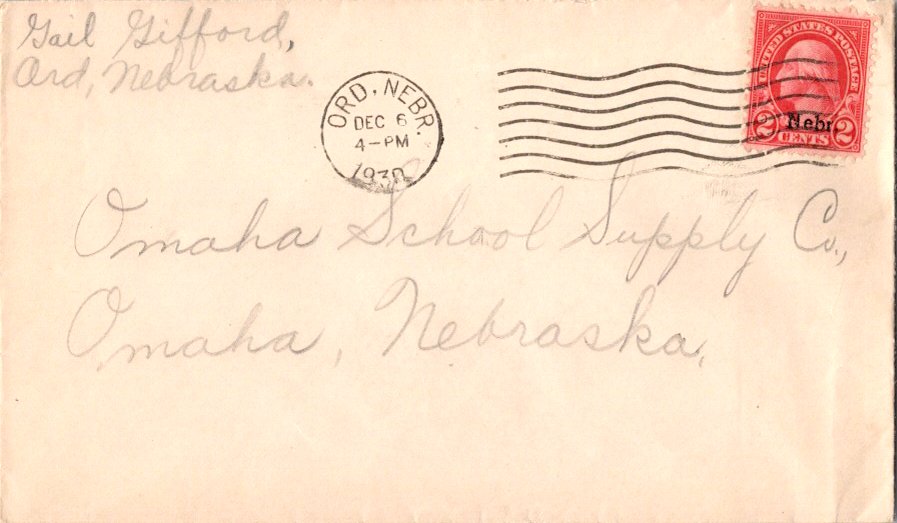 Gail Gifford,
Ord, Nebraska.
ORD, NEBR.
DEC 6
4-PM
1930
UNITED STATES POSTAGE
Nebr.
2 CENTS 2
Omaha School Supply Co.,
Omaha, Nebraska.